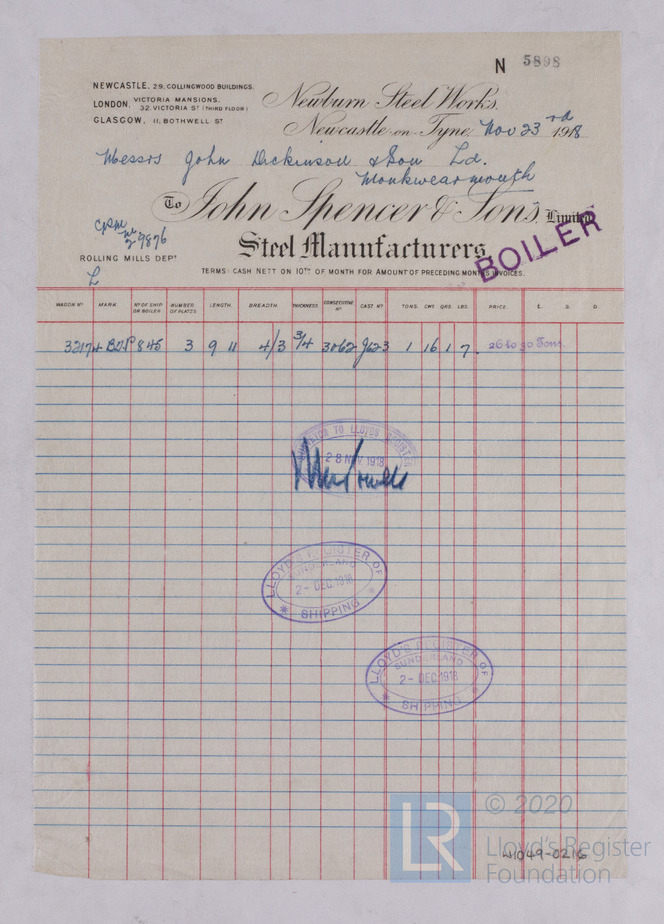 N 5898
NEWCASTLE, 29, COLLINGWOOD BUILDINGS.
LONDON, VICTORIA MANSIONS,
32, VICTORIA ST (THIRD FLOOR)
GLASGOW, 11, BOTHWELL ST
Newburn Steel Works.
Newcastle-on-Tyne, Nov 23rd 1918
Messrs John Dickinson & Son Ld.
Monkwearmouth
To John Spencer & Sons, Limited
Steel Manufacturers.
BOILER
2 9876
ROLLING MILLS DEPT
L
TERMS: CASH NETT ON 10TH OF MONTH FOR AMOUNT OF PRECEDING MONTH'S INVOICES.
WAGON No MARK No OF SHIP OR BOILER NUMBER OF PLATES LENGTH. BREADTH. THICKNESS. CONSECUTIVE No CAST No TONS. CWT. QRS. LBS. PRICE. £. S. D.
32174 BDP 845 3 9 11 4/3 3/4 3062 J623 1 16 1 7. 26 to 30 Tons.
TO LLOYDS REGISTER
28 NOV 1918
LLOYD'S REGISTER OF
SUNDERLAND
2- DEC 1918
SHIPPING
LLOYD'S REGISTER OF
SUNDERLAND
2- DEC 1918
SHIPPING
LR
© 2020
Lloyd's Register
Foundation
W1049-0216